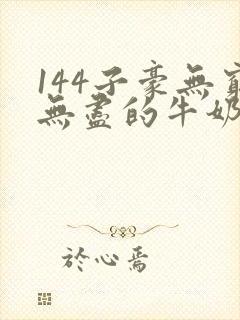 144子豪無窮
無盡的牛奶
於心焉